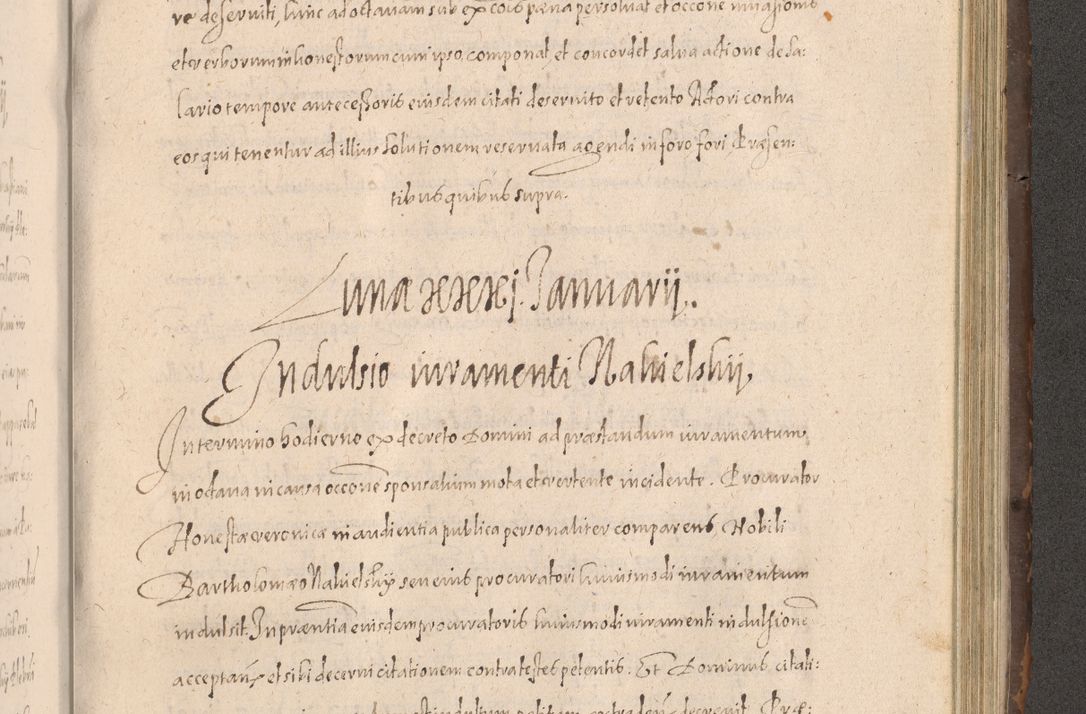 re deserviti, hinc ad octavam sub excōis pæna persolvat et occōne invasionis
et verborum inhonestorum cum ipso componat, et concordet salva actione de sa:
lario tempore antecessoris eiusdem citati deservito et retento Actori contra
eos qui tenentur ad illius solutionem reservata agendi in foro fori Præsen:
tibus quibus supra.
Lunæ xxxj. Januarij.
Indulsio iuramenti Nakielskij.
In termino hodierno ex decreto Domini ad præstandum iuramentum,
in octava in causa occōne sponsalium mota et vertente incidente. Procurator
Honestæ veronicæ in audientia publica personaliter comparens, Nobili
Bartholomæo Nakielskÿ seu eius procuratori huiusmodi iuramentum
indulsit. In præntia eiusdem procuratoris huiusmodi iuramenti indulsionē
acceptan et sibi decerni citationem contra testes petentis. Et Dominus citati:
decrevit. Præ: